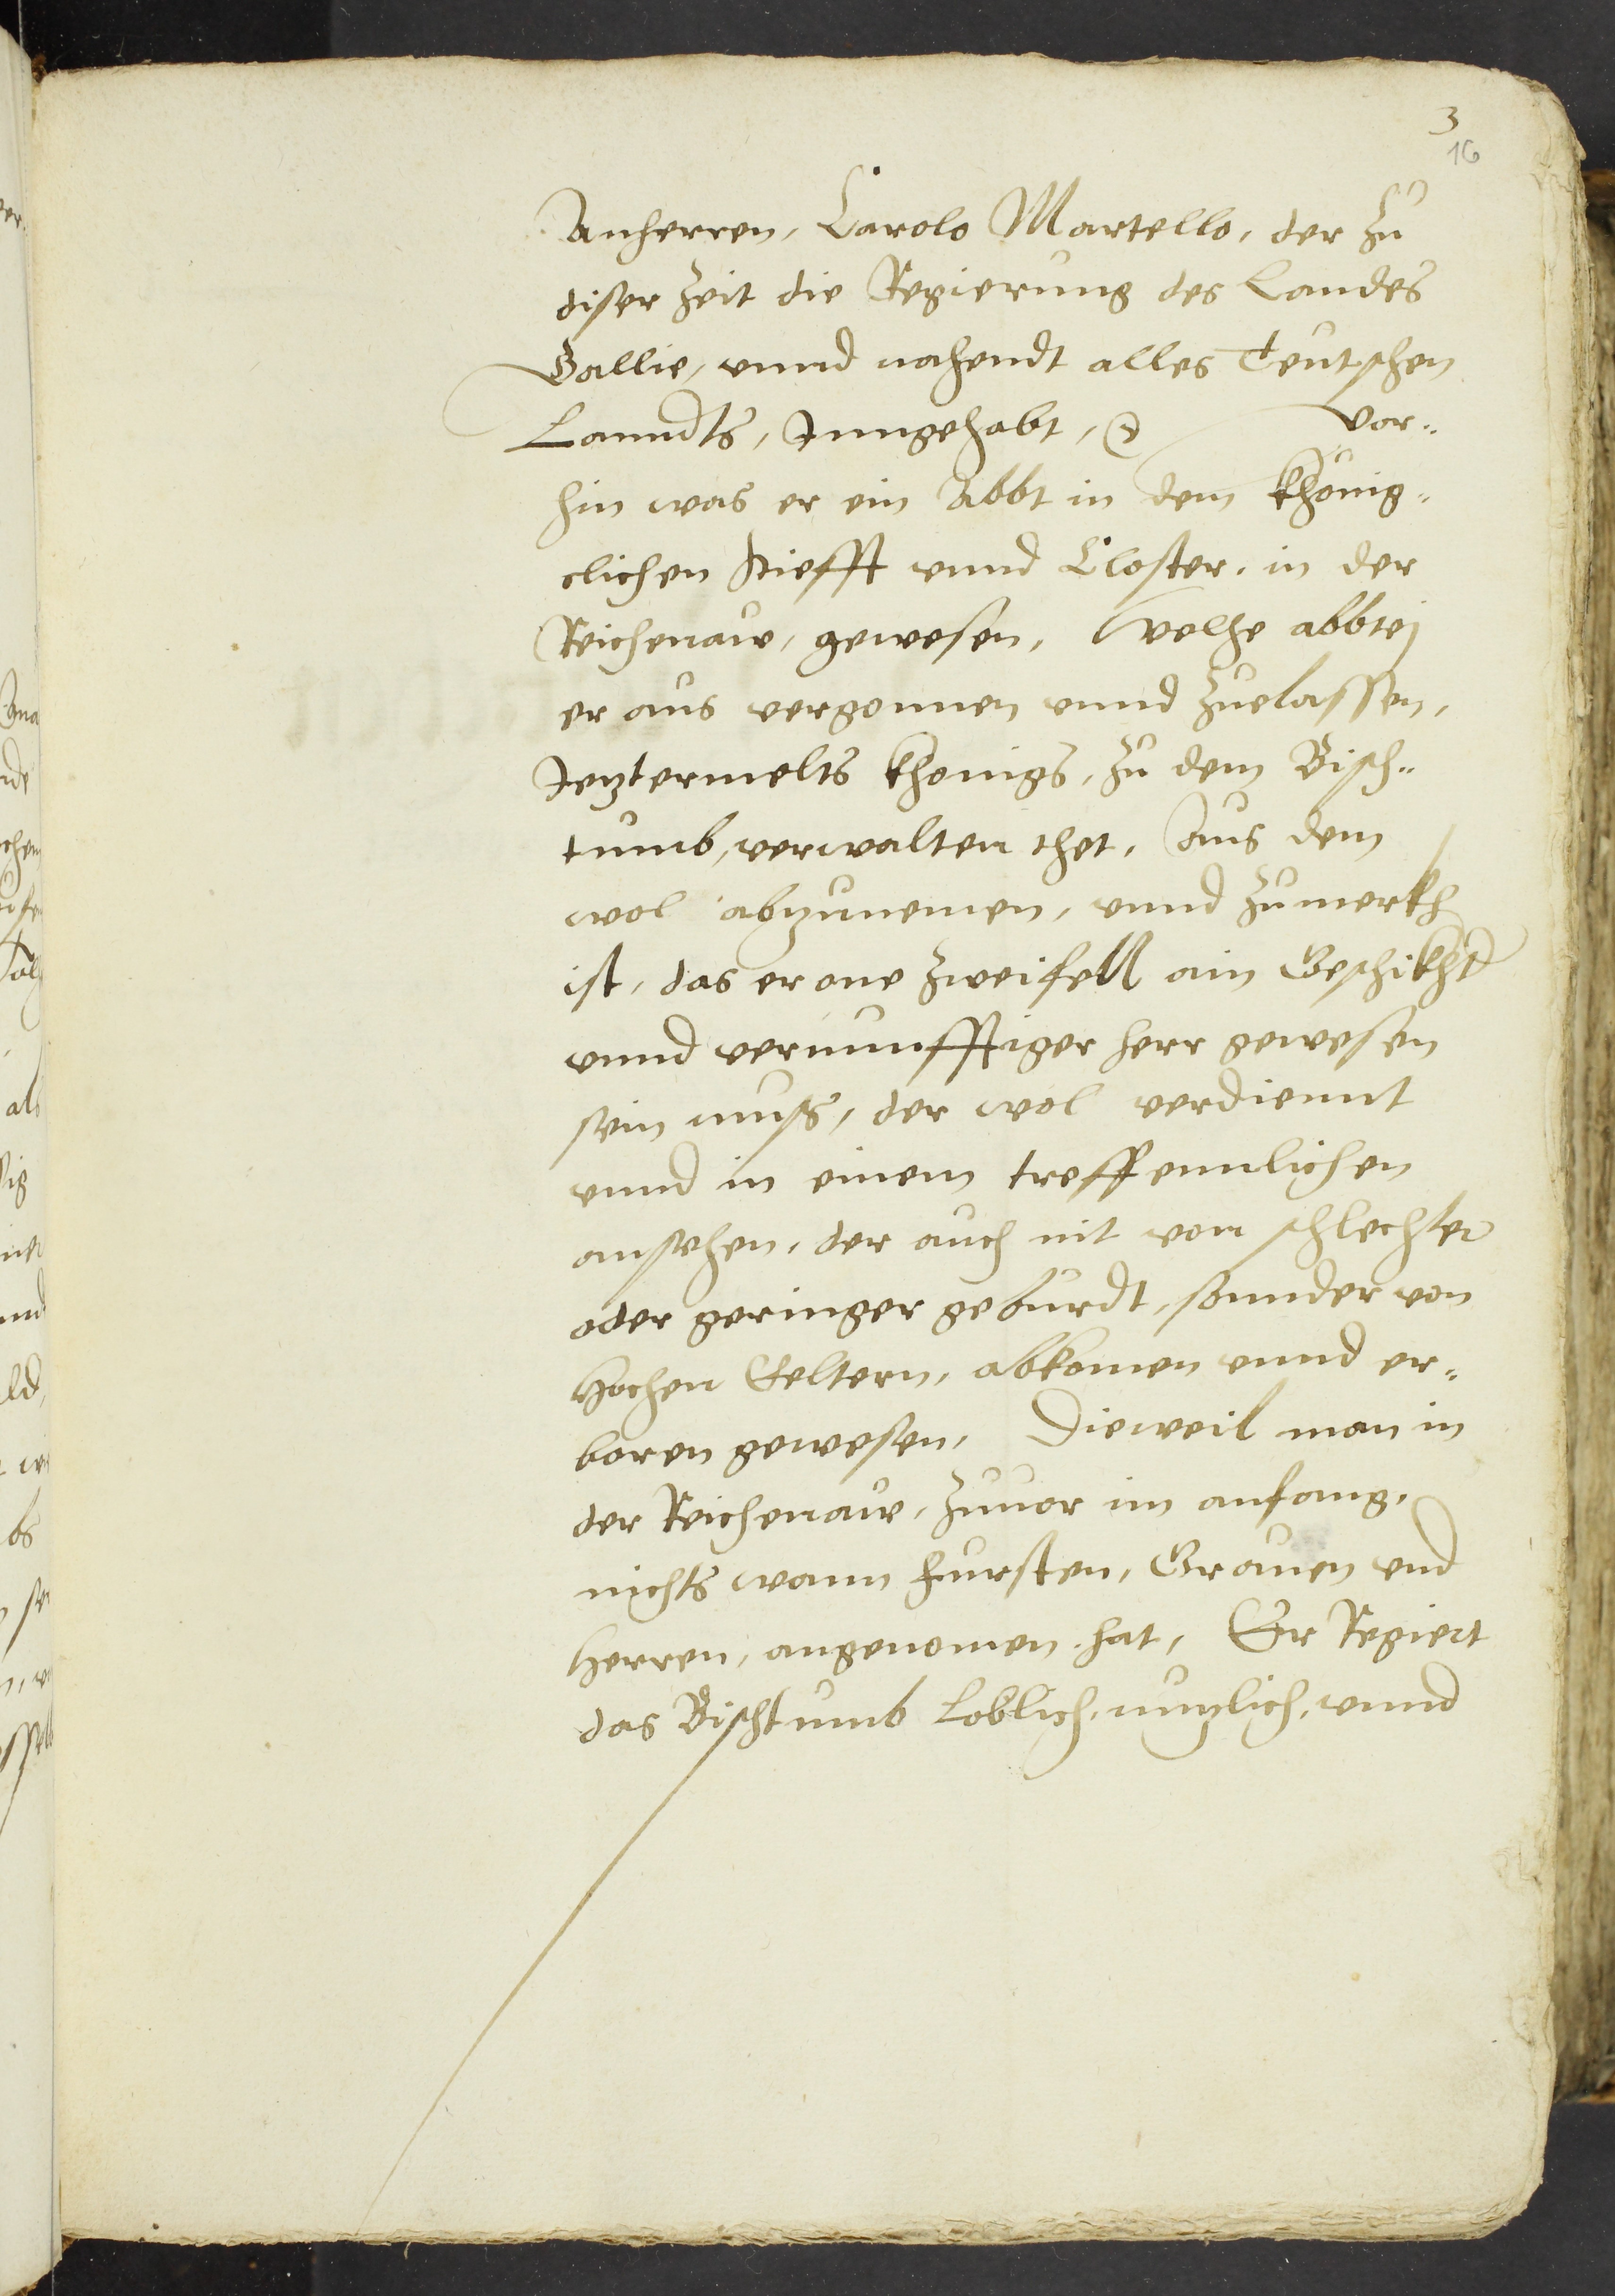 3
16
Anherren, Carolo Martello, der zu
diser Zeit die Regierung des Landes
Gallie, vnnd nahendt alles Teutschen
Lanndts, Inngehabt, Vor=
hin was er ein Abbt in dem khönig=
clichen Stiefft vnnd Closter, in der
Reichenaw, gewesen, Welhe abbtej
er aus vergonnen vnnd Zuelassen,
Jeztermelts khonigs, zu dem Bisch=
tumb, verwalten thet, Aus dem
wol abzunemen, vnnd zumerkh
ist, das er one Zweifell ain Geschikht
vnnd vernunfftiger herr gewesen
sein muss, der wol verdiennt
vnnd in einem treffennlichen
ansehen, der auch nit von schlechter
oder geringer geburdt, sonnder von
hochen Eeltern, abkomen vnnd er=
boren gewesen, Dieweil man in
der Reichenaw, Zuuor im anfang,
nichts wann Fursten, Grauen vnd
Herren, angenomen hat, Er Regiert
das Bischtumb Loblich, nuzlich, vnnd